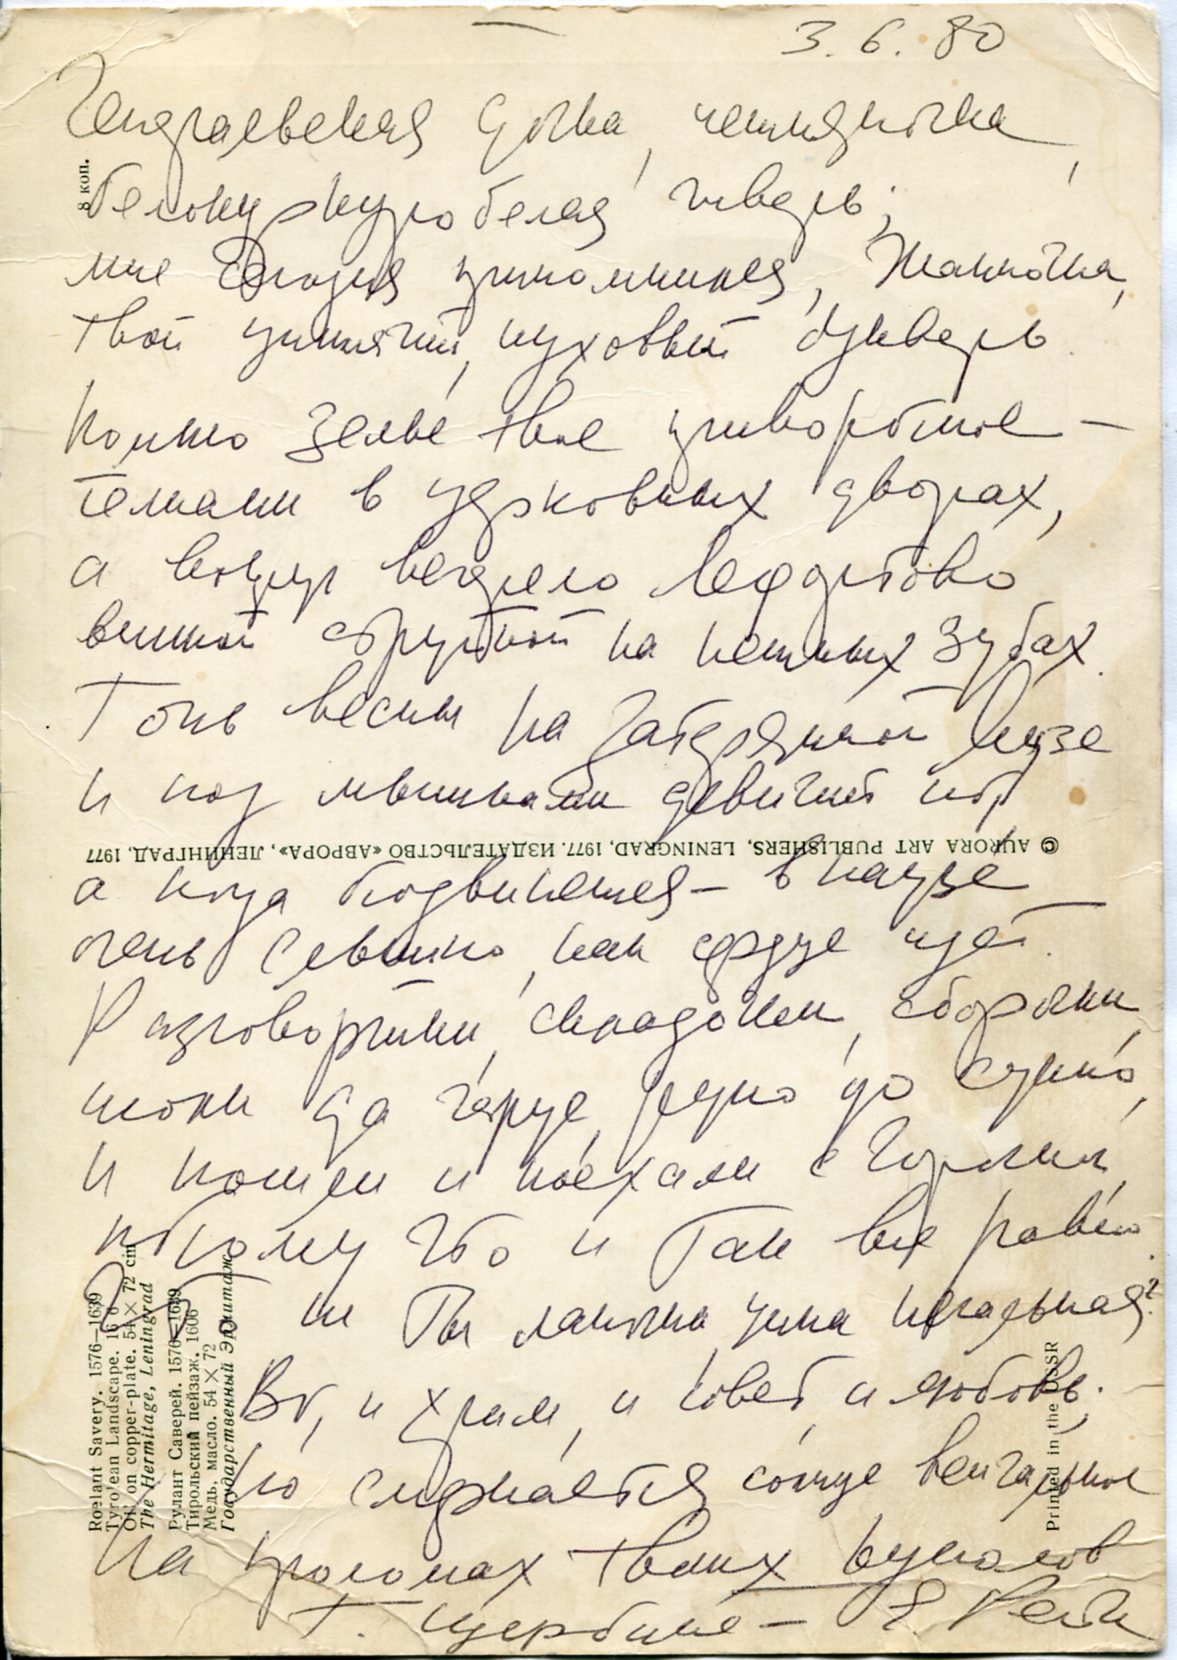 3.6.80
дочка,
белая
мне сегодня припомнился, Жанночка,
твой пуховый букварь.
Помню зелье твое приворотное —
в церковных дворах,
а вокруг веяло Лефортово
винной струйкой на нежных зубах.
Тень весны на затерянной Яузе
и под мышками девичий пот,
а когда подвинешься — в паузе
очень слышно, как сердце идет.
Разговорчики, складочки, сборочки,
да горе, до сукно,
и пошли и поехали с горочки,
потому что и так все равно.
Ты лапочка, цаца печальная?
Вот, и храм, и совет, и любовь;
но сложается солнце венчальное
На проломах твоих куполов.
Т. Щербине — Е. Рейн
8 коп.
© AURORA ART PUBLISHERS, LENINGRAD, 1977. ИЗДАТЕЛЬСТВО «АВРОРА», ЛЕНИНГРАД, 1977
Roelant Savery. 1576—1639
Tyrolean Landscape. 1606
Oil on copper-plate. 54 × 72 cm
The Hermitage, Leningrad
Рулант Саверей. 1576—1639
Тирольский пейзаж. 1606
Медь, масло. 54 × 72
Государственный Эрмитаж
Printed in the USSR